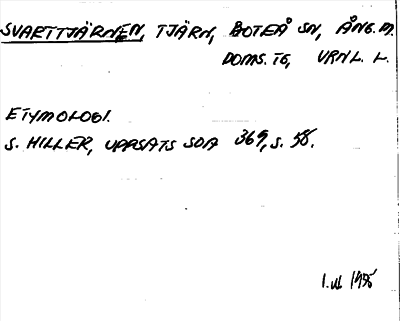 SVARTTJÄRNEN, TJÄRN, BOTEÅ SN, ÅNG. M.
DOMS. TG, URNL. L.
ETYMOLOGI.
S. HILLER, UPPSATS SOA 369, S. 58.
1995